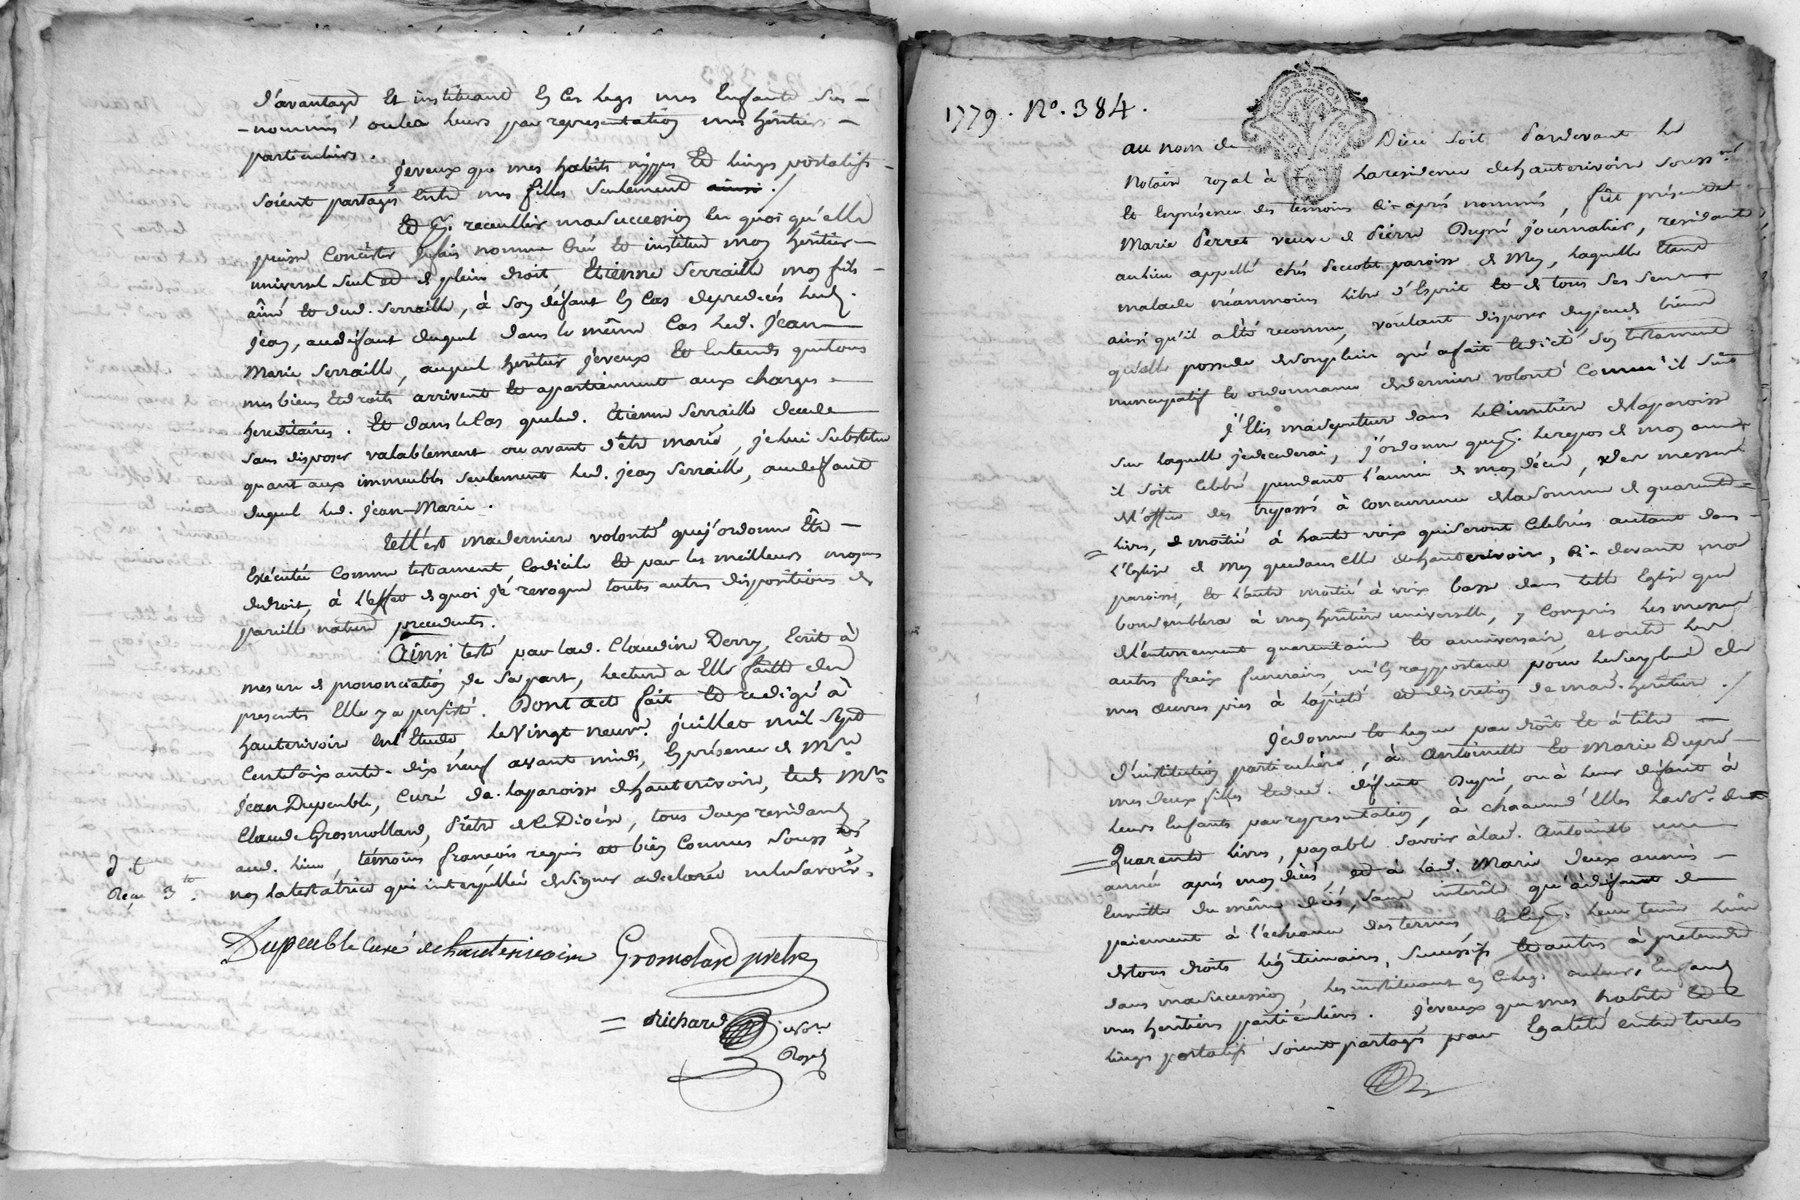 d'avantage et instituant en ces legs mes enfants sus-
-nommés ou les leurs par representation mes héritiers
particuliers.
je veux que mes habits nippes et linges portatifs
soient partagés entre mes filles seulement ainsi ./
Et pr. recueillir ma succession en quoi qu'elle
puisse consister je fais nomme créé et institue mon héritier
universel seul et de plein droit Etienne Serraille mon fils
ainé et dud. Serraille, à son défaut en cas de predecés led.
jean, au défaut duquel dans le même cas led. jean
Marie Serraille, auquel heritier je veux et entends que tous
mes biens et droits arrivent et apartiennent aux charges
hereditaires. Et dans le cas que led. Etienne Serraille decede
sans disposer valablement ou avant d'etre marié, je lui substitue
quant aux immeubles seulement led. jean Serraille, au défaut
duquel led. jean-Marie.
telle est ma derniere volonté que j'ordonne être
executée comme testament codicile et par les meilleurs moyens
de droit, à l'effet de quoi je revoque toutes autres dispositions de
pareille nature precedentes.
Ainsi testé par lad. Claudine Derry, Ecrit à
mesure de prononciation de sa part, lecture a elle faitte des
presents Elle y a persisté. Dont acte fait et redigé à
hauterivoire en l'Etude le vingt neuf juillet mil sept
cent soixante-dix neuf avant midi, en présence de Mre
jean Dupeuble, Curé de la paroisse de hauterivoire, et de Mre
Claude Grosmolland, Prêtre de ce Diocèse, tous deux residents
aud. lieu témoins françois requis et bien connus soussnés
non la testatrice qui interpellée de signer a declaré ne le savoir.
Reçu 3 tt
Dupeuble curé de hauterivoire Gromolard prêtre
= Richard
Royal
1779. No. 384.
G. DE LYON
au nom de Dieu soit Pardevant le
Notaire royal à la residence de hauterivoire souss.né
Et en présence des temoins ci-après nommés, fut présente
Marie Perret veuve de Piérre Dupré journalier, residante
au lieu appellé chés paroisse de Mey, laquelle étant
malade néanmoins libre d'Esprit et de tous ses sens
ainsi qu'il a été reconnu, voulant disposer des biens
qu'elle possede de son plein gré a fait et dicté son testament
nuncupatif et ordonnance de derniere volonté comme il suit
j'Elis ma sepulture dans le Cimetière de la paroisse
sur laquelle je decederai, j'ordonne que pr. le repos de mon ame
il soit celebré pendant l'année de mon décès, des messes
de l'office des trepassés à concurrence de la somme de quarente
livres, de moitié à haute voix qui seront célébrées autant dans
l'Eglise de Mey que dans celle de hauterivoire, ci-devant ma
paroisse, et l'autre moitié à voix basse dans telle Eglise que
bon semblera à mon héritière universelle, y compris les messes
de l'enterrement quarentaine et anniversaire, et outre les
autres frais funerairs, m'en rapportant pour le surplus de
mes œuvres pies à la piété et discretion de mad. heritière ./
je donne et legue par droit et à titre
d'institution particulière, à Antoinette et Marie Dupré
mes deux filles et dud. défunt Dupré, ou à leur défaut à
leurs enfants par représentation, à chacune d'elles la so. de
= Quarente livres, payable savoir à lad. Antoinette une
année après mon décès, et à lad. Marie deux années
ensuitte du même décès, sans interêt qu'à défaut de
paiement à l'echeance des termes, leur tenir lieu
de tous droits légitimaires, successifs et autres à pretendre
dans ma succession, les instituant en ce legs ou leurs Enfans
mes heritiers particuliers. je veux que mes habits et
linges portatifs soient partagés par Egalité entre toutes